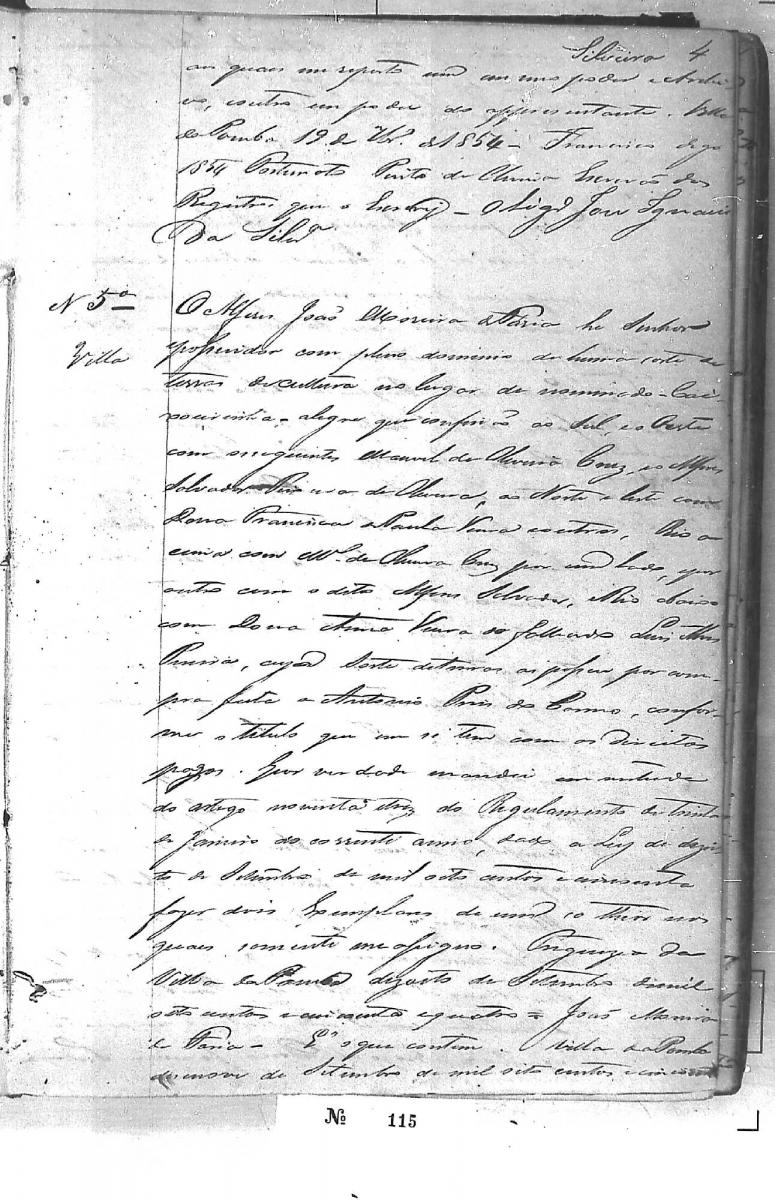 Silveira 4
as quaes me reporto em meu poder e Archi-
vo, e outro em poder do appresentante. Villa
da Pomba 19 de 7br.º de 1854 - Francisco digo
1854 Porto de Escrivão dos
Registros que o Escrevy - O Vigrº José Ignacio
Da Silvª
N 5º
Villa
O Alferes João Moreira de Faria he Senhor
e possuidor com pleno dominio de huma sorte de
terras de cultura no lugar de nominado - Cax-
oeirinha - alegre que confinão ao Sul, e o Oeste
com os seguintes Manoel de Oliveira Cruz, e o Alferes
Salvador de Oliveira, ao Norte e leste com
Dona Francisca de Paula Vieira e outros, Rio a
cima com Mel. de Oliveira Cruz por um lado, e por
outro com o dito Alferes Salvador, Rio abaixo
com Dona Anna Vieira do falhecido Luis
Pereira, cuja Sorte de terras as posseu por com-
pra feita a Antonio Pires do Carmo, confor-
me o titulo que em si tem com os direitos
pagos. E por verdade mandei em virtude
do artego noventa e trez do Regulamento de trinta
de Janeiro do corrente anno, dado a Ley de dezoi-
to de Setembro de mil oito centos e cincoenta
fazer dois Exemplares de um só theor nos
quaes somente me assigno. Freguezia da
Villa da Pomba dezoito de Setembro de mil
oito centos e cincoenta e quatro = João Moreira
de Faria - E o que contem. Villa da Pomba
desenove de Setembro de mil oito centos e cincoenta
Nº 115